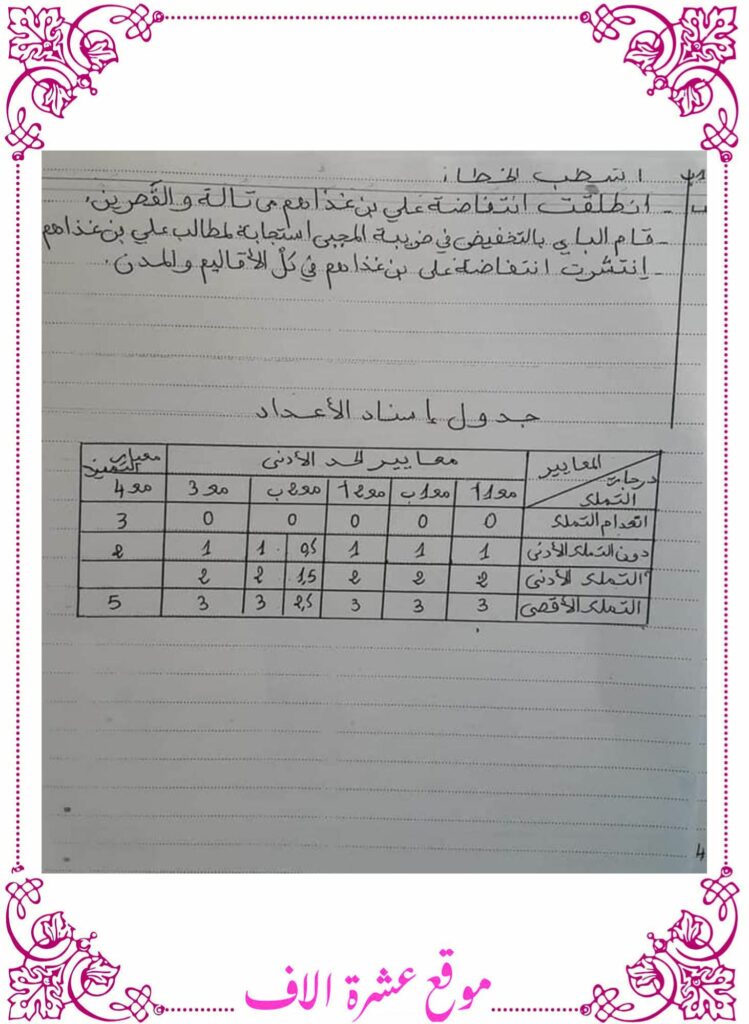 أشطب الخطأ:
- انطلقت انتفاضة علي بن غذاهم من تالة والقصرين.
- قام الباي بالتخفيض في ضريبة المجبى استجابة لمطالب علي بن غذاهم
- إنتشرت انتفاضة علي بن غذاهم في كلّ الأقاليم والمدن.
جدول إسناد الأعداد
المعايير درجات التملك معايير الحد الأدنى معيار التميز
مع1أ مع1ب مع2أ مع2ب مع3 مع4
انعدام التملك 0 0 0 0 0 3
دون التملك الأدنى 1 1 1 0,5 1 1 2
التملك الأدنى 2 2 2 1,5 2 2
التملك الأقصى 3 3 3 2,5 3 3 5
4
موقع عشرة الاف